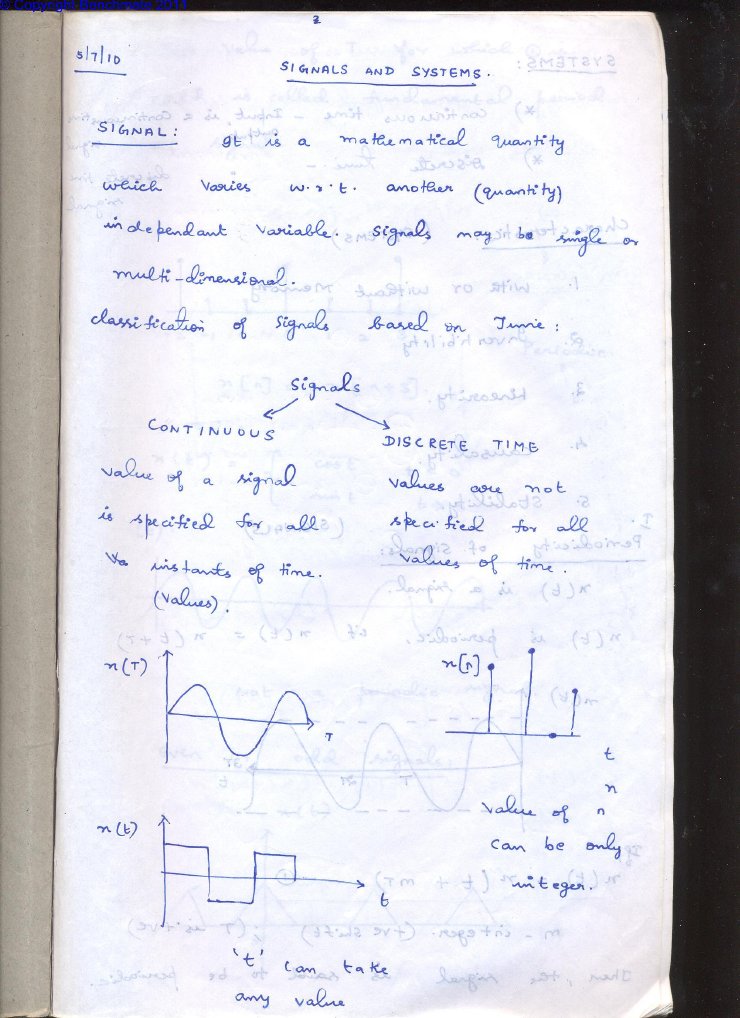 © Copyright Benchmate 2011
2
5/7/10
SIGNALS AND SYSTEMS.
SIGNAL: It is a mathematical quantity
which varies w.r.t. another (quantity)
independant variable. Signals may be single or
multi-dimensional.
classification of Signals based on Time:
Signals
CONTINUOUS
value of a signal
is specified for all
instants of time.
(values).
DISCRETE TIME
values are not
specified for all
values of time.
x(T)
T
x[n]
t
n
value of n
can be only
integer.
x(t)
t
't' can take
any value